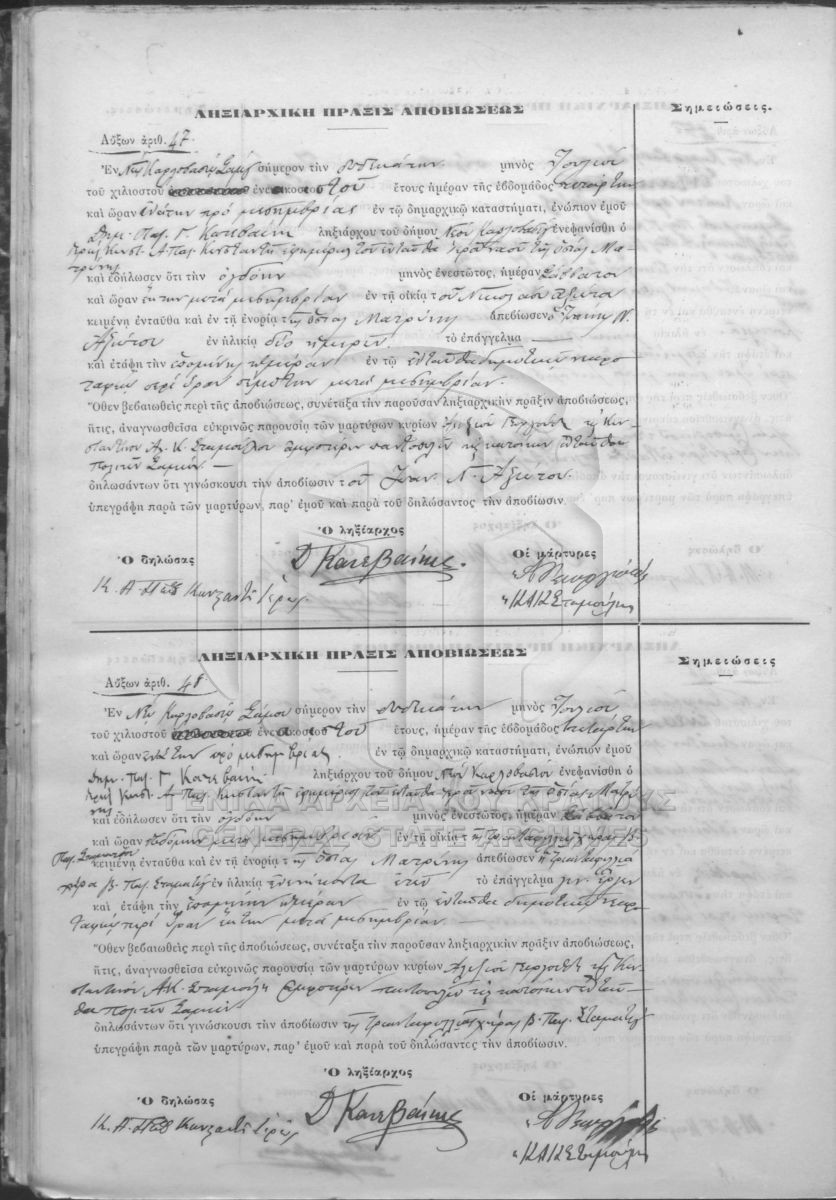 ΛΗΞΙΑΡΧΙΚΗ ΠΡΑΞΙΣ ΑΠΟΒΙΩΣΕΩΣ
Σημειώσεις.
Αὔξων ἀριθ. 47
Ἐν Νέῳ Καρλοβασίῳ Σάμου σήμερον τὴν ἑνδεκάτην μηνὸς Ἰουλίου
τοῦ χιλιοστοῦ ἐνεακοσιοστοῦ ἔτους ἡμέραν τῆς ἑβδομάδος τετάρτην
καὶ ὥραν ἐνάτην πρὸ μεσημβρίας ἐν τῷ δημαρχικῷ καταστήματι, ἐνώπιον ἐμοῦ
Δημ. Παπ. Γ. Κατεβαίνη ληξιάρχου τοῦ δήμου Νέου Καρλοβασίου ἐνεφανίσθη ὁ
Κωνστ. Α Παπ. Κωνσταντῆ ἐφημέριος τοῦ ἐνταῦθα ἱεροῦ ναοῦ τῆς ὁσίας Μα-
τρώνης
καὶ ἐδήλωσεν ὅτι τὴν ὀγδόην μηνὸς ἐνεστῶτος, ἡμέραν Σάββατον
καὶ ὥραν ἕκτην μετὰ μεσημβρίαν ἐν τῇ οἰκίᾳ τοῦ Νικολάου Ἀξιώτου
κειμένῃ ἐνταῦθα καὶ ἐν τῇ ἐνορίᾳ τῆς ὁσίας Ματρώνης ἀπεβίωσεν ὁ Ἰωάν. Ν.
Ἀξιώτου ἐν ἡλικίᾳ δύο ἡμερῶν. τὸ ἐπάγγελμα —
καὶ ἐτάφη τὴν ἑπομένην ἡμέραν ἐν τῷ ἐνταῦθα δημοτικῷ νεκρο
ταφείῳ περὶ ὥραν πέμπτην μετὰ μεσημβρίαν.
Ὅθεν βεβαιωθεὶς περὶ τῆς ἀποβιώσεως, συνέταξα τὴν παροῦσαν ληξιαρχικὴν πρᾶξιν ἀποβιώσεως,
ἥτις, ἀναγνωσθεῖσα εὐκρινῶς παρουσίᾳ τῶν μαρτύρων κυρίων Ἀλεξίου Γεωργιάδη καὶ Κων-
σταντίνου Αλ. Κ. Σταμούλου ἀμφοτέρων παντοπωλῶν καὶ κατοίκων ἐνταῦθα
πολιτῶν Σαμίων. —
δηλωσάντων ὅτι γινώσκουσι τὴν ἀποβίωσιν τοῦ Ἰωαν. Ν. Ἀξιώτου.
ὑπεγράφη παρὰ τῶν μαρτύρων, παρ' ἐμοῦ καὶ παρὰ τοῦ δηλώσαντος τὴν ἀποβίωσιν.
Ὁ ληξίαρχος
Ὁ δηλώσας
Οἱ μάρτυρες
Δ Κατεβαίνης.
Α Γεωργιάδης
Κ. Α Παπ Κωνσταντῆ Ἱερεύς.
Κ Α Κ Σταμούλης
ΛΗΞΙΑΡΧΙΚΗ ΠΡΑΞΙΣ ΑΠΟΒΙΩΣΕΩΣ
Σημειώσεις
Αὔξων ἀριθ. 48
Ἐν Νέῳ Καρλοβασίῳ Σάμου σήμερον τὴν ἑνδεκάτην μηνὸς Ἰουλίου
τοῦ χιλιοστοῦ ἐνεακοσιοστοῦ ἔτους, ἡμέραν τῆς ἑβδομάδος τετάρτην
καὶ ὥραν ἐνάτην πρὸ μεσημβρίας. ἐν τῷ δημαρχικῷ καταστήματι, ἐνώπιον ἐμοῦ
Δημ. Παπ. Γ Κατεβαίνη ληξιάρχου τοῦ δήμου Νέου Καρλοβασίου ἐνεφανίσθη ὁ
Κωνστ. Α Παπ. Κωνσταντῆ ἐφημέριος τοῦ ἐνταῦθα ἱεροῦ ναοῦ τῆς ὁσίας Ματρώ
νης
ΓΕΝΙΚΑ ΑΡΧΕΙΑ ΤΟΥ ΚΡΑΤΟΥΣ
καὶ ἐδήλωσεν ὅτι τὴν ὀγδόην μηνὸς ἐνεστῶτος, ἡμέραν Σάββατον
GENERAL STATE ARCHIVES
καὶ ὥραν ἑβδόμην μετὰ μεσημβρίαν ἐν τῇ οἰκίᾳ τῆς Τριανταφυλλιᾶς χήρας Β.
Παπ. Σταματίου
κειμένῃ ἐνταῦθα καὶ ἐν τῇ ἐνορίᾳ τῆς ὁσίας Ματρώνης ἀπεβίωσεν ἡ Τριανταφυλλιὰ
χήρα Β. Παπ. Σταματίου ἐν ἡλικίᾳ ἐνενήκοντα ἐτῶν τὸ ἐπάγγελμα
καὶ ἐτάφη τὴν ἑπομένην ἡμέραν ἐν τῷ ἐνταῦθα δημοτικῷ νεκρο
ταφείῳ περὶ ὥραν ἕκτην μετὰ μεσημβρίαν. —
Ὅθεν βεβαιωθεὶς περὶ τῆς ἀποβιώσεως, συνέταξα τὴν παροῦσαν ληξιαρχικὴν πρᾶξιν ἀποβιώσεως,
ἥτις, ἀναγνωσθεῖσα εὐκρινῶς παρουσίᾳ τῶν μαρτύρων κυρίων Ἀλεξίου Γεωργιάδη καὶ Κων-
σταντίνου Α.Κ. Σταμούλη ἀμφοτέρων παντοπωλῶν καὶ κατοίκων ἐνταῦ-
θα πολιτῶν Σαμίων
δηλωσάντων ὅτι γινώσκουσι τὴν ἀποβίωσιν τῆς Τριανταφυλλιᾶς χήρας Β. Παπ. Σταματίου
ὑπεγράφη παρὰ τῶν μαρτύρων, παρ' ἐμοῦ καὶ παρὰ τοῦ δηλώσαντος τὴν ἀποβίωσιν.
Ὁ ληξίαρχος
Ὁ δηλώσας
Οἱ μάρτυρες
Δ Κατεβαίνης
Α Γεωργιάδης
Κ. Α Παπ Κωνσταντῆ Ἱερεύς
Κ Α Κ Σταμούλης